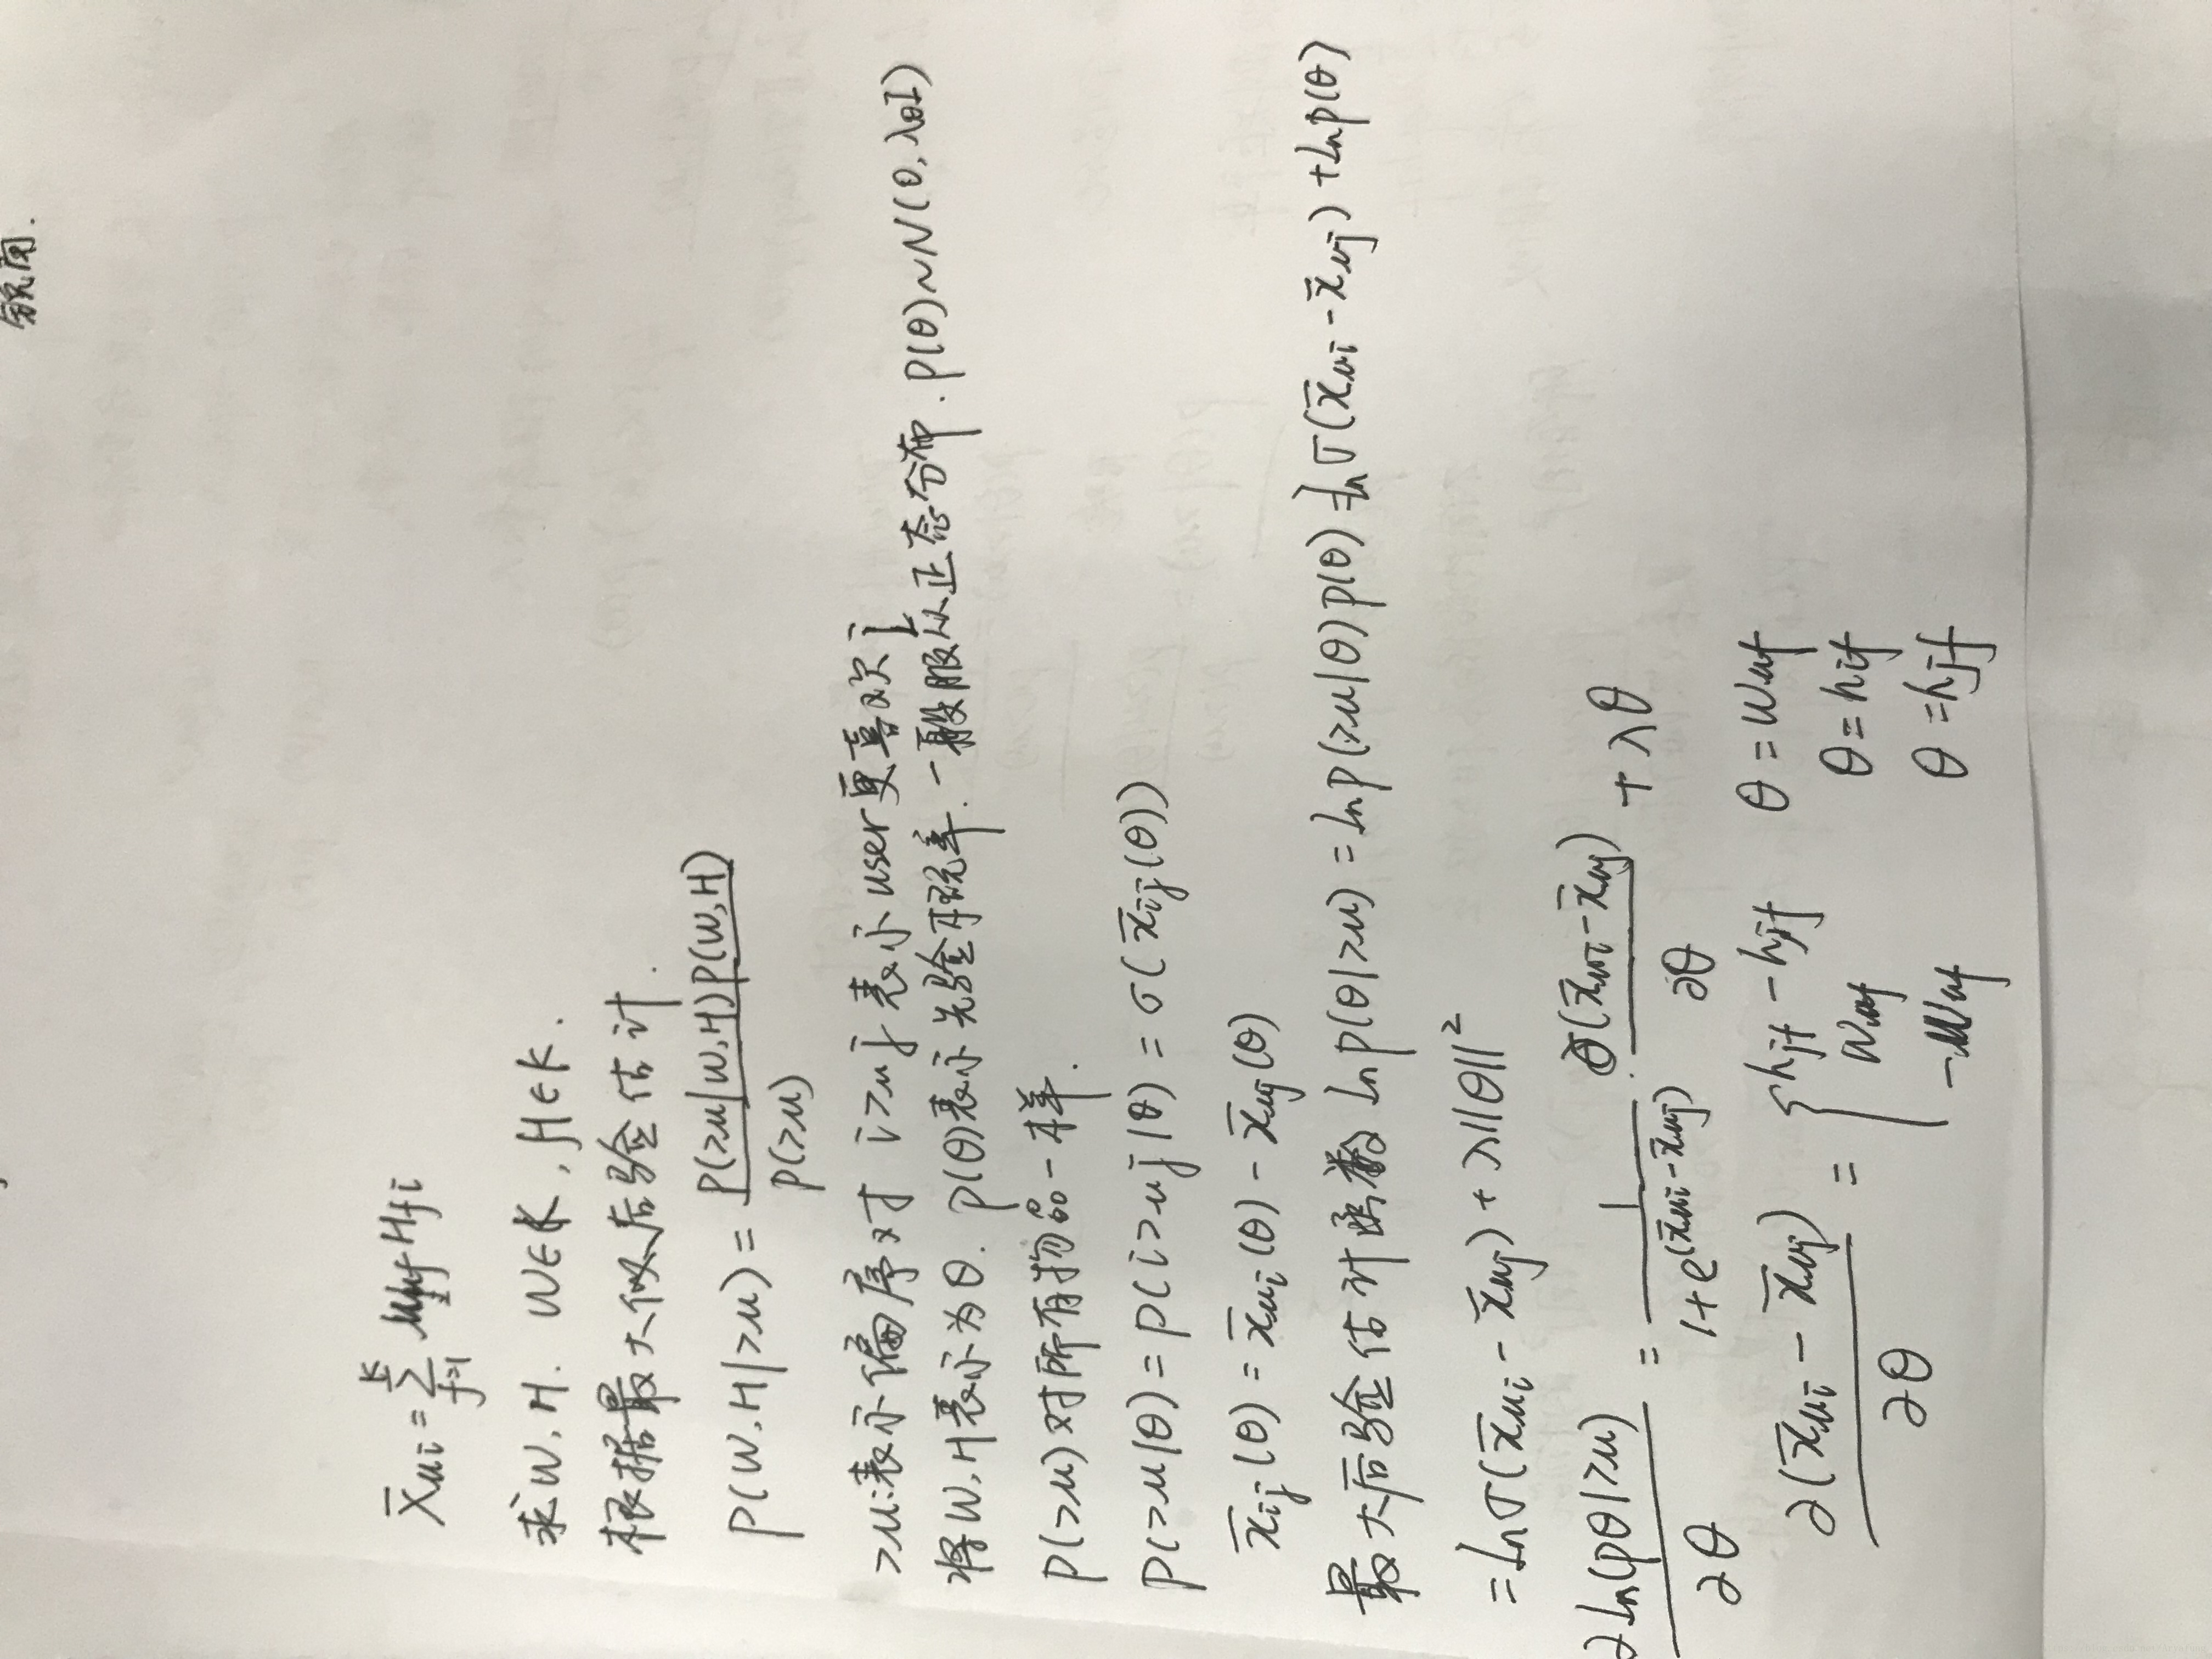 领南.
x̄ui = Σ_{f=1}^{K} Wuf Hfi
求W,H. W∈K, H∈K.
根据最大似后验估计.
P(W,H|>u) = P(>u|W,H)P(W,H) / P(>u)
>u:表示偏序对 i>uj表示user更喜欢i
将W,H表示为θ. P(θ)表示先验概率.一般服从正态分布. P(θ)~N(0,λθI)
P(>u)对所有物品一样.
P(>u|θ) = P(i>uj|θ) = σ(x̄ij(θ))
x̄ij(θ) = x̄ui(θ) - x̄uj(θ)
最大后验估计函数 Ln P(θ|>u) = Ln P(>u|θ)P(θ) = Ln σ(x̄ui - x̄uj) + Ln P(θ)
= Ln σ(x̄ui - x̄uj) + λ||θ||²
∂Ln(Pθ|>u) / ∂θ = 1 / (1+e^(x̄ui - x̄uj)) · ∂(x̄ui - x̄uj) / ∂θ + λθ
∂(x̄ui - x̄uj) / ∂θ = { hif - hjf θ = wuf
wuf θ = hif
-wuf θ = hjf